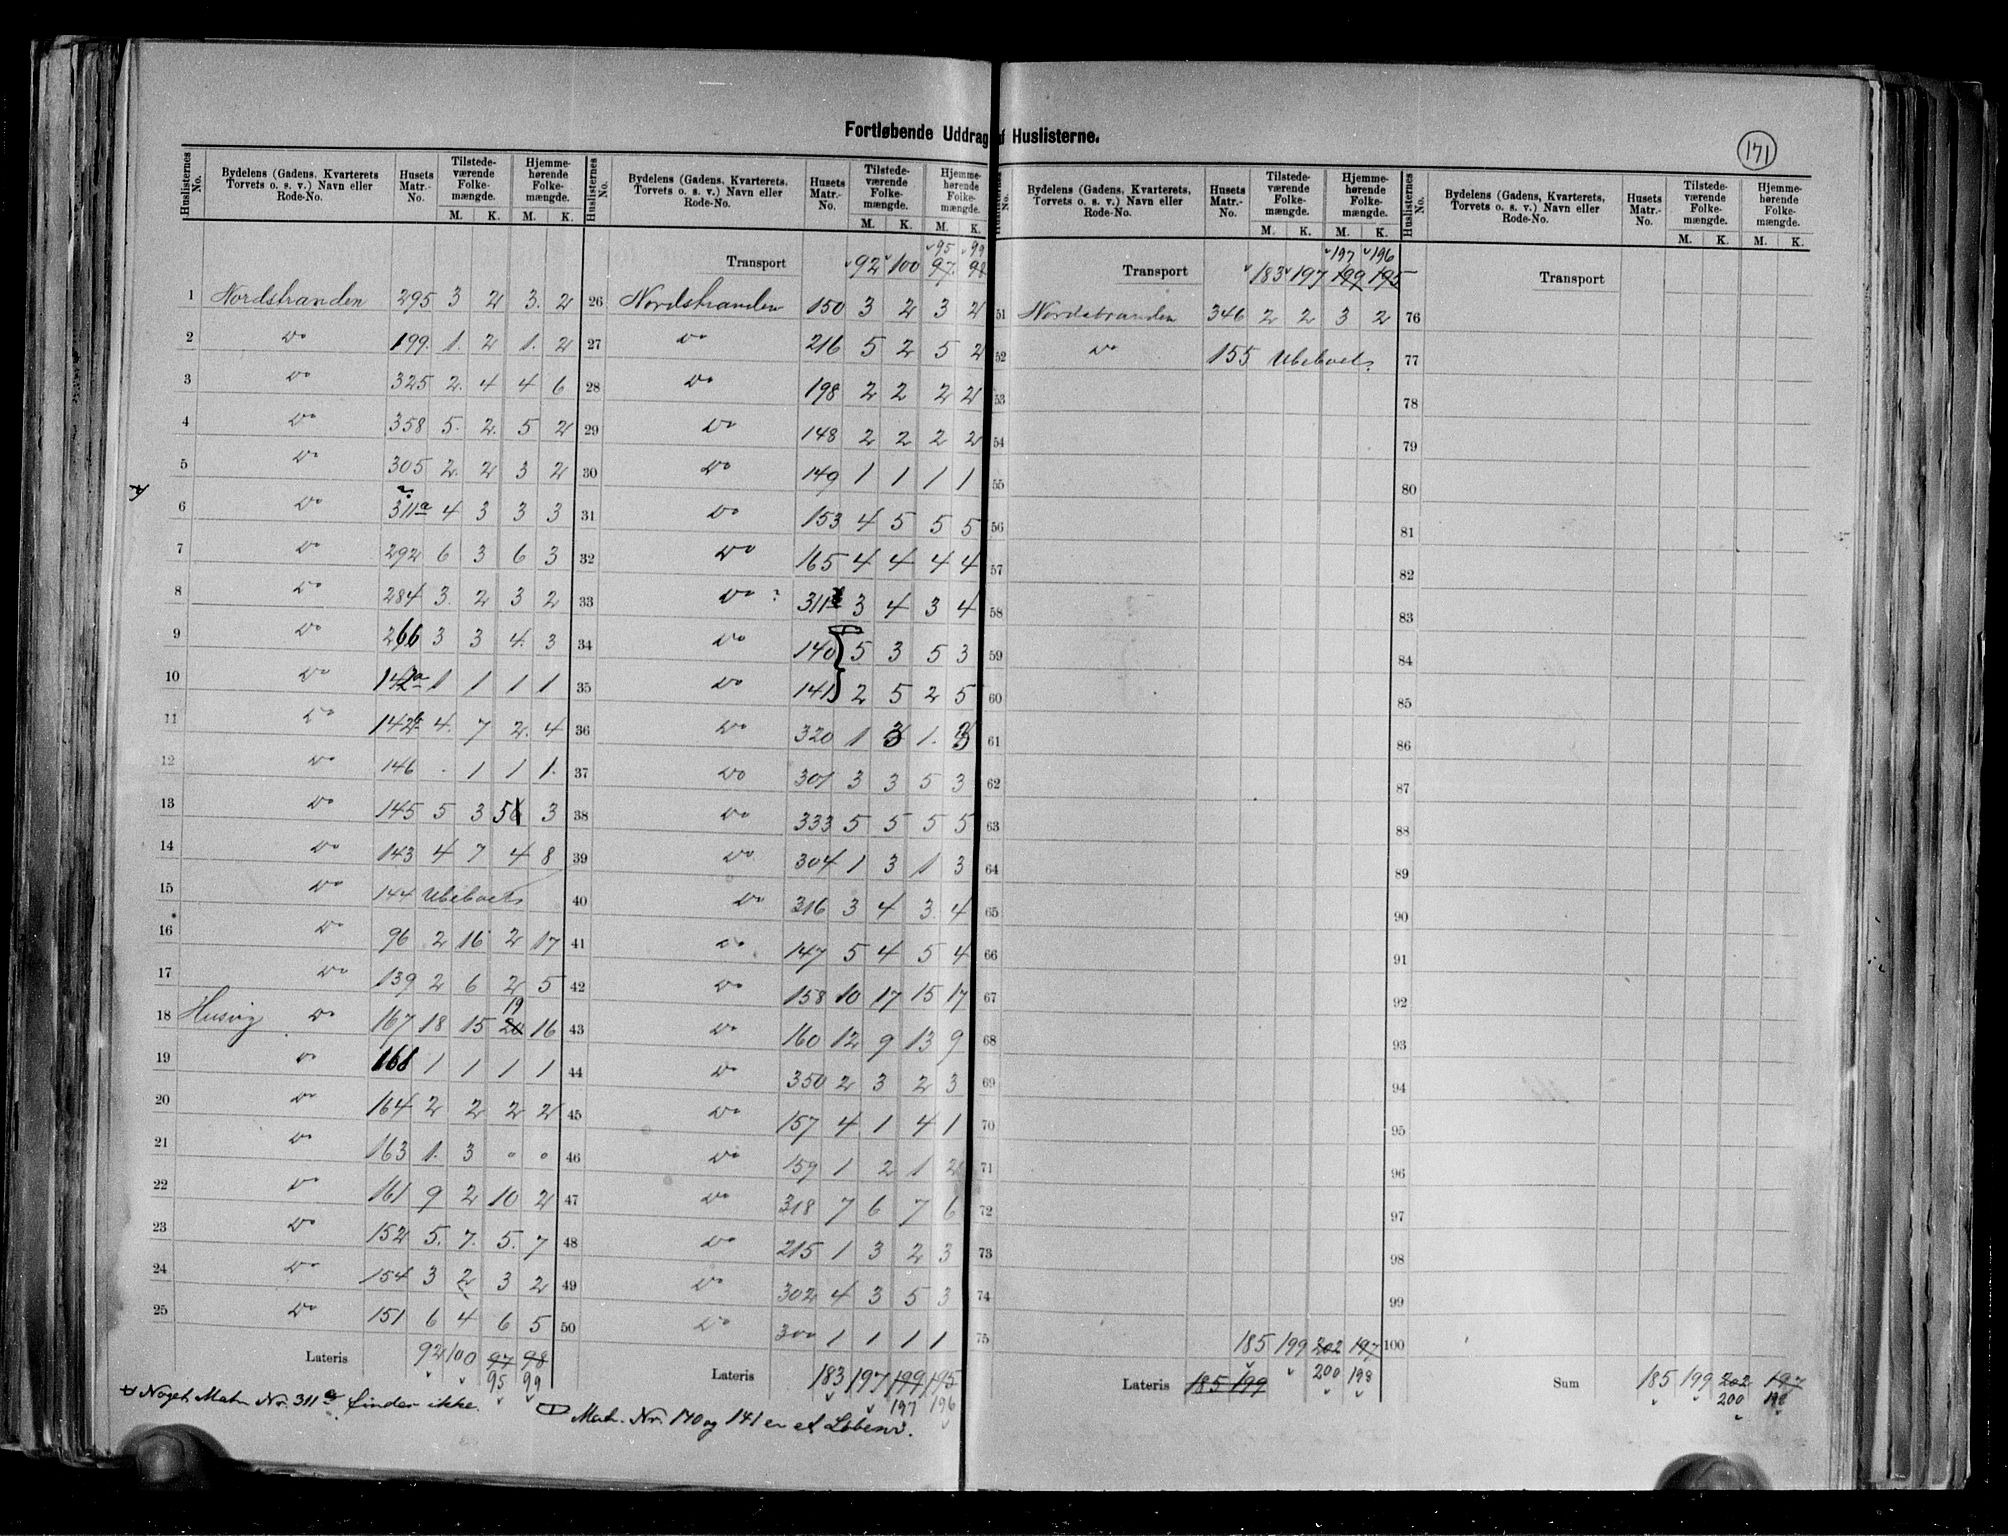 Fortløbende Uddrag af Huslisterne.
171
Huslisternes No. | Bydelens (Gadens, Kvarterets, Torvets o. s. v.) Navn eller Rode-No. | Husets Matr.-No. | Tilstedeværende Folkemængde. M. K. | Hjemmehørende Folkemængde. M. K.
1 Nordstranden 295 3 2 3. 2
2 Do 199. 1. 2 1. 2
3 Do 325 2. 4 4 6
4 Do 358 5. 2. 5 2
5 Do 305 2. 2 3 2
6 Do 311a 4 3 3 3
7 Do 292 6 3 6 3
8 Do 284 3. 2 3 2
9 Do 266 3 3 4. 3
10 Do 142a 1 1 1 1
11 Do 142b 4. 7 2. 4
12 Do 146 . 1 1 1.
13 Do 145 5 3 5 3
14 Do 143 4 7 4 8
15 Do 144 Ubeboets
16 Do 96 2 16 2 17
17 Do 139 2 6 2 5
18 Husvig Do 167 18 15 19 20 16
19 Do 168 1 1 1 1
20 Do 164 2 2 2 2
21 Do 163 1. 3 " "
22 Do 161 9 2 10 2
23 Do 152 5. 7. 5. 7
24 Do 154 3 2 3 2
25 Do 151 6 4 6 5
Lateris 92 100 97 98
95 99
Huslisternes No. | Bydelens (Gadens, Kvarterets, Torvets o. s. v.) Navn eller Rode-No. | Husets Matr.-No. | Tilstedeværende Folkemængde. M. K. | Hjemmehørende Folkemængde. M. K.
95 99
Transport 92 100 97. 98
26 Nordstranden 150 3 2 3 2
27 Do 216 5 2 5 2
28 Do 198 2 2 2 2
29 Do 148 2 2 2 2
30 Do 149 1 1 1 1
31 Do 153 4 5 5 5
32 Do 165 4 4 4 4
33 Do 311 3 4 3 4
34 Do 140 5 3 5 3
35 Do 141 2 5 2 5
36 Do 320 1 3 1. 3
37 Do 301 3 3 5 3
38 Do 333 5 5 5 5
39 Do 304 1 3 1 3
40 Do 316 3 4 3. 4
41 Do 147 5 4 5 4
42 Do 158 10 17 15 17
43 Do 160 12 9 13 9
44 Do 350 2 3 2 3
45 Do 157 4 1 4 1
46 Do 159 1 2 1 2
47 Do 318 7 6 7 6
48 Do 215 1 3 2 3
49 Do 302 4 3 5 3
50 Do 300 1 1 1 1
Lateris 183 197 199 195
197 196
Noget Matr. Nr. 311a findes ikke.
Matr. Nr. 140 og 141 er et Løbenr.
Huslisternes No. | Bydelens (Gadens, Kvarterets, Torvets o. s. v.) Navn eller Rode-No. | Husets Matr.-No. | Tilstedeværende Folkemængde. M. K. | Hjemmehørende Folkemængde. M. K.
197 196
Transport 183 197 199 195
51 Nordstranden 346 2 2 3 2
52 Do 155 Ubeboets.
53
54
55
56
57
58
59
60
61
62
63
64
65
66
67
68
69
70
71
72
73
74
75 185 199 202 197
Lateris 185 199 200 198
Huslisternes No. | Bydelens (Gadens, Kvarterets, Torvets o. s. v.) Navn eller Rode-No. | Husets Matr.-No. | Tilstedeværende Folkemængde. M. K. | Hjemmehørende Folkemængde. M. K.
Transport
76
77
78
79
80
81
82
83
84
85
86
87
88
89
90
91
92
93
94
95
96
97
98
99
100
Sum 185 199 202 197
200 198